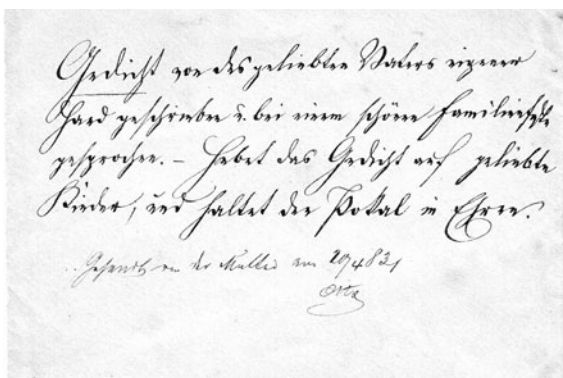 Gedicht von des geliebten Vaters eigener
Hand geschrieben u. bei einem schönen Familienfeste
gesprochen. – Hebet das Gedicht auf geliebte
Kinder, und haltet den Pokal in Ehren.
von der am 29/4 83
Otto